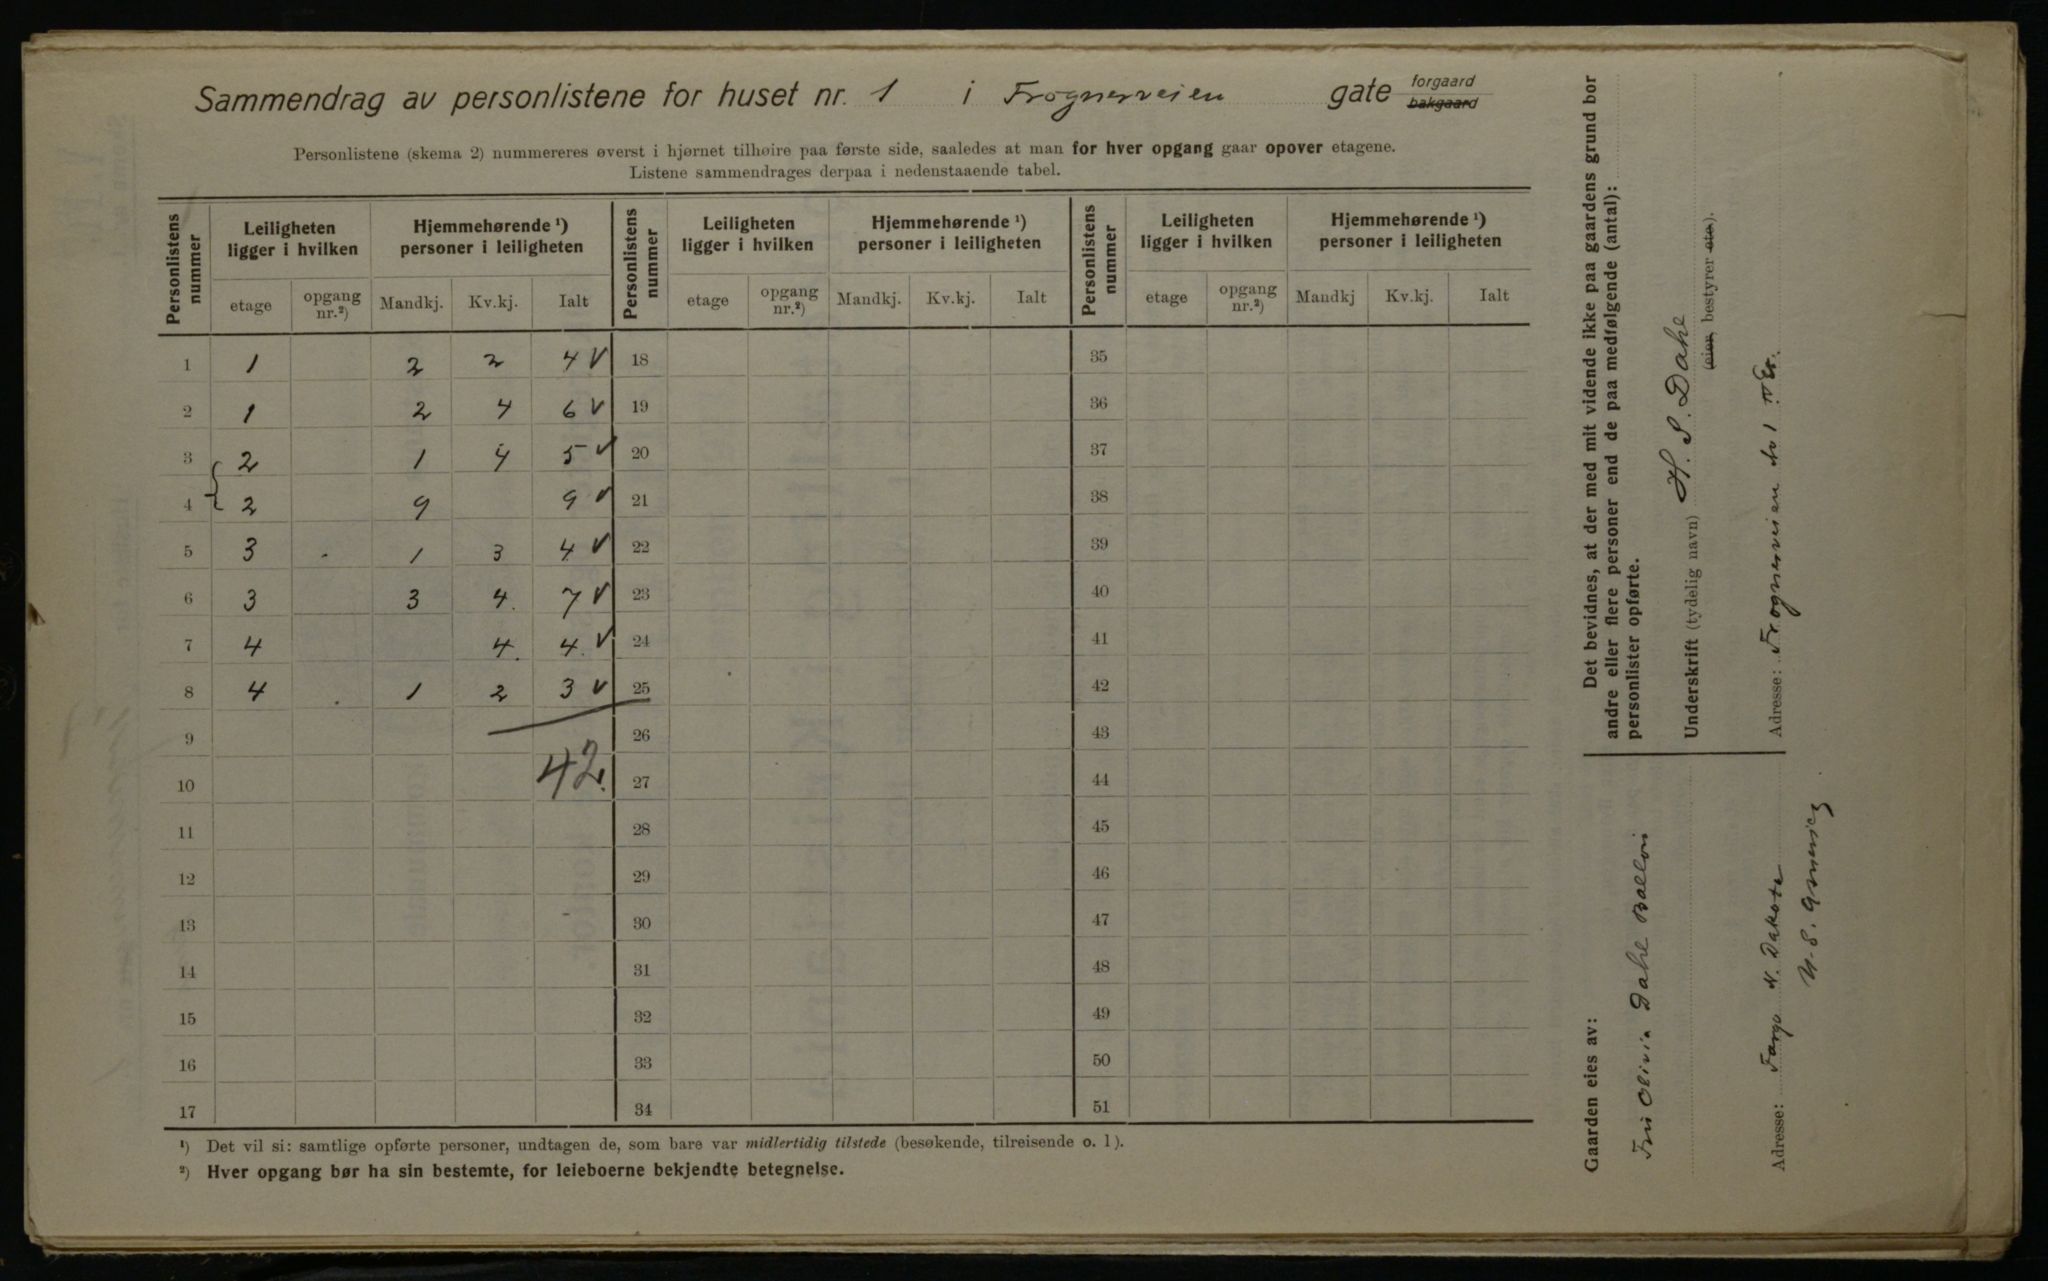 Sammendrag av personlistene for huset nr. 1 i Frognerveien gate forgaard bakgaard
Personlistene (skema 2) nummereres øverst i hjørnet tilhøire paa første side, saaledes at man for hver opgang gaar opover etagene.
Listene sammendrages derpaa i nedenstaaende tabel.
Personlistens nummer Leiligheten ligger i hvilken Hjemmehørende ¹) personer i leiligheten Personlistens nummer Leiligheten ligger i hvilken Hjemmehørende ¹) personer i leiligheten Personlistens nummer Leiligheten ligger i hvilken Hjemmehørende ¹) personer i leiligheten
etage opgang nr.²) Mandkj. Kv.kj. Ialt etage opgang nr.²) Mandkj. Kv.kj. Ialt etage opgang nr.²) Mandkj Kv.kj. Ialt
1 1 2 2 4 √ 18 35
2 1 2 4 6 √ 19 36
3 2 1 4 5 √ 20 37
4 2 9 9 √ 21 38
5 3 1 3 4 √ 22 39
6 3 3 4. 7 √ 23 40
7 4 4. 4. √ 24 41
8 4 1 2 3 √ 25 42
9 26 43
10 42. 27 44
11 28 45
12 29 46
13 30 47
14 31 48
15 32 49
16 33 50
17 34 51
¹) Det vil si: samtlige opførte personer, undtagen de, som bare var midlertidig tilstede (besøkende, tilreisende o. l).
²) Hver opgang bør ha sin bestemte, for leieboerne bekjendte betegnelse.
Det bevidnes, at der med mit vidende ikke paa gaardens grund bor
andre eller flere personer end de paa medfølgende (antal):
personlister opførte.
Underskrift (tydelig navn) H. S. Dahl
(eier, bestyrer etc).
Adresse: Frognerveien No 1
Gaarden eies av:
Fru Olivia Dahl
Adresse: Fargo N. Dakota